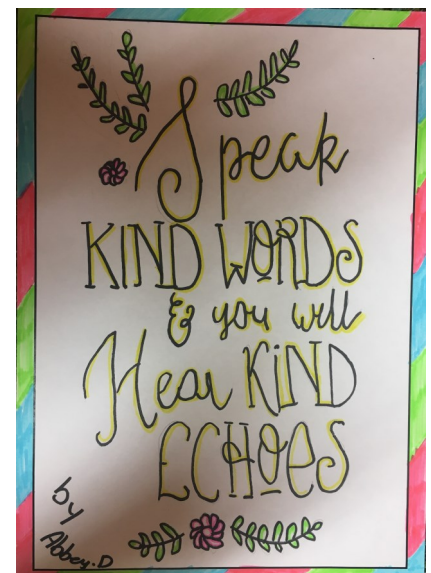 Speak
KIND WORDS
& you will
Hear KiND
ECHOeS
by
Abbey.D